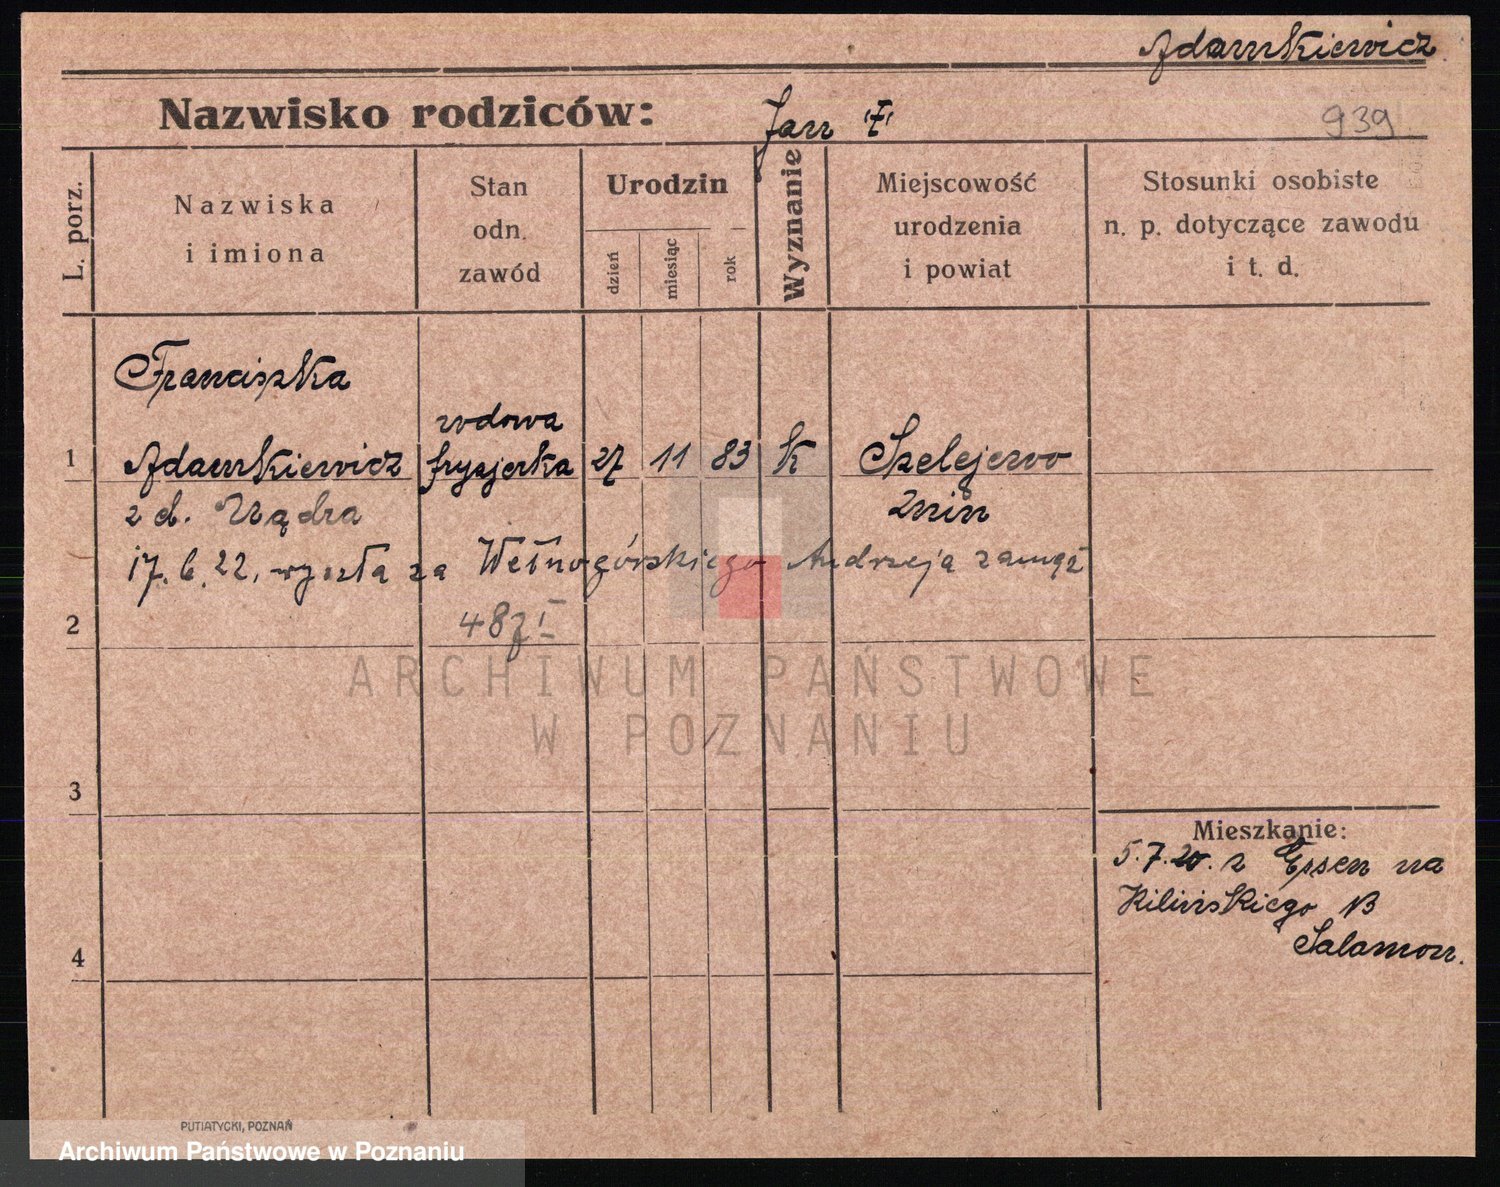 Adamkiewicz
Nazwisko rodziców:
Jan "Z"
939
L. porz.
Nazwiska
i imiona
Stan
odn.
zawód
Urodzin
dzień
miesiąc
rok
Wyznanie
Miejscowość
urodzenia
i powiat
Stosunki osobiste
n. p. dotyczące zawodu
i t. d.
Franciszka
1 Adamkiewicz wdowa fryzjerka 27 11 83 K Szelejewo
z d. Rządza Żnin
17.6.22. wyszła za Wełnogórskiego Andrzeja zamąż
2
3
Mieszkanie:
5.7.20. z Essen na
Kilińskiego 13
Salamon.
4
PUTIATYCKI, POZNAŃ
ARCHIWUM PAŃSTWOWE
W POZNANIU
Archiwum Państwowe w Poznaniu